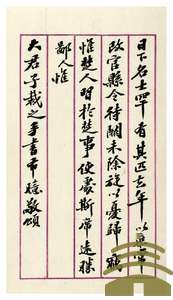 日下名士罕有其匹去年以同知
改官縣令待闕未除旋以憂歸
惟楚人習於楚事使處斯席遠勝
鄙人惟
大君子裁之手書布臆敬頌